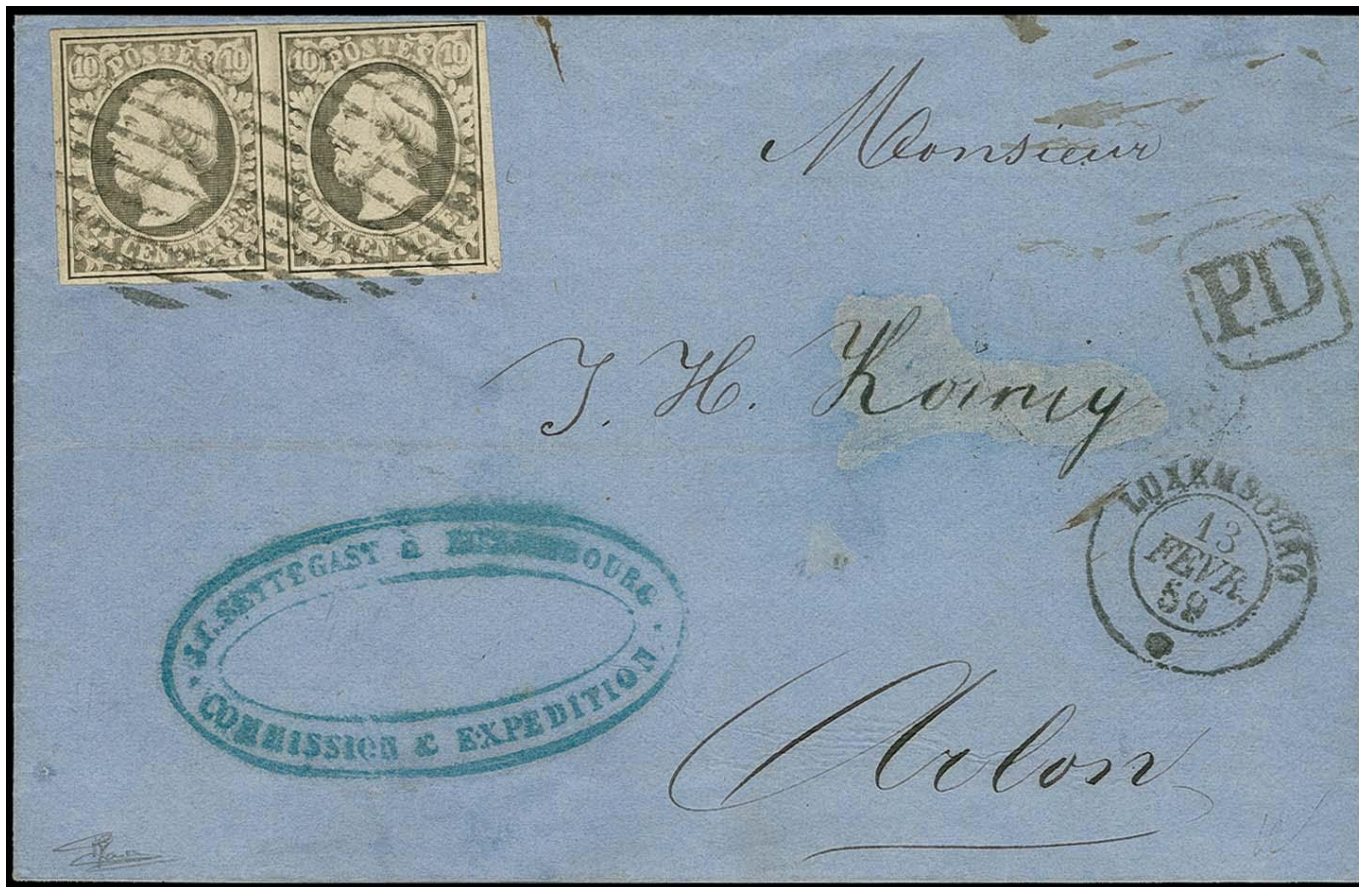 POSTES
10 10
UN CENTIMES
POSTES
10 10
UN CENTIMES
Monsieur
PD
J. H. Koenig
LUXEMBOURG
13
FEVR.
59
J.C. SEYTEGAST à LUXEMBOURG
COMMISSION & EXPEDITION
Arlon